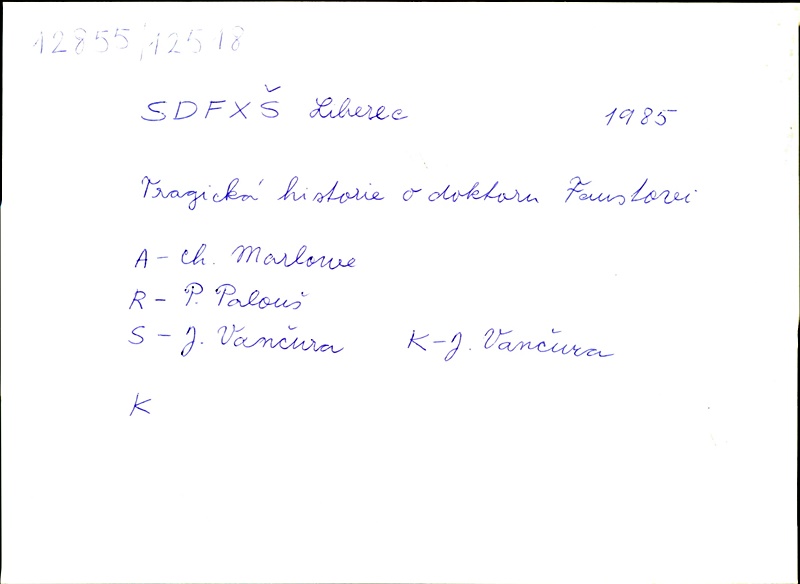 12855, 12518
SDFXŠ Liberec 1985
Tragická historie o doktoru Faustovi
A - Ch. Marlowe
R - P. Palouš
S - J. Vančura K - J. Vančura
K